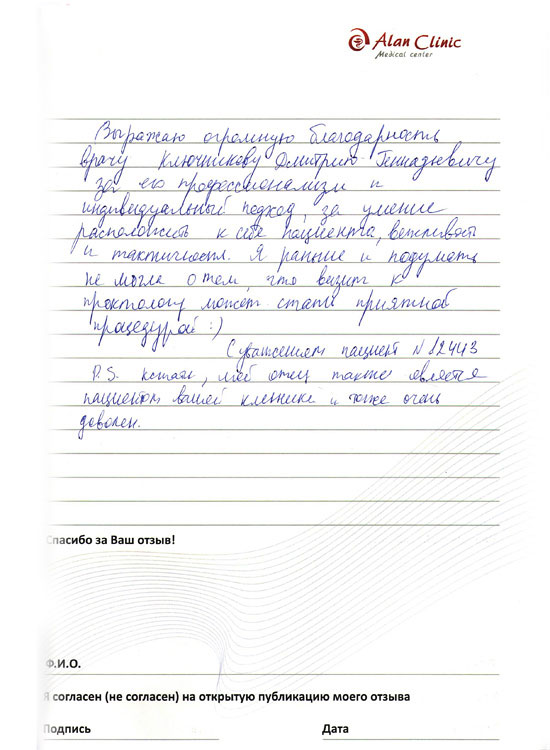 Alan Clinic
Medical center
Выражаю огромную благодарность
врачу Ключникову Дмитрию Геннадиевичу
за его профессионализм и
индивидуальный подход, за умение
расположить к себе пациента, вежливость
и тактичность. Я раньше и подумать
не могла о том, что визит к
проктологу может стать приятной
процедурой :)
С уважением пациент N 12443
P.S. кстати, мой отец также является
пациентом вашей клиники и тоже очень
доволен.
Спасибо за Ваш отзыв!
Ф.И.О.
Я согласен (не согласен) на открытую публикацию моего отзыва
Подпись Дата